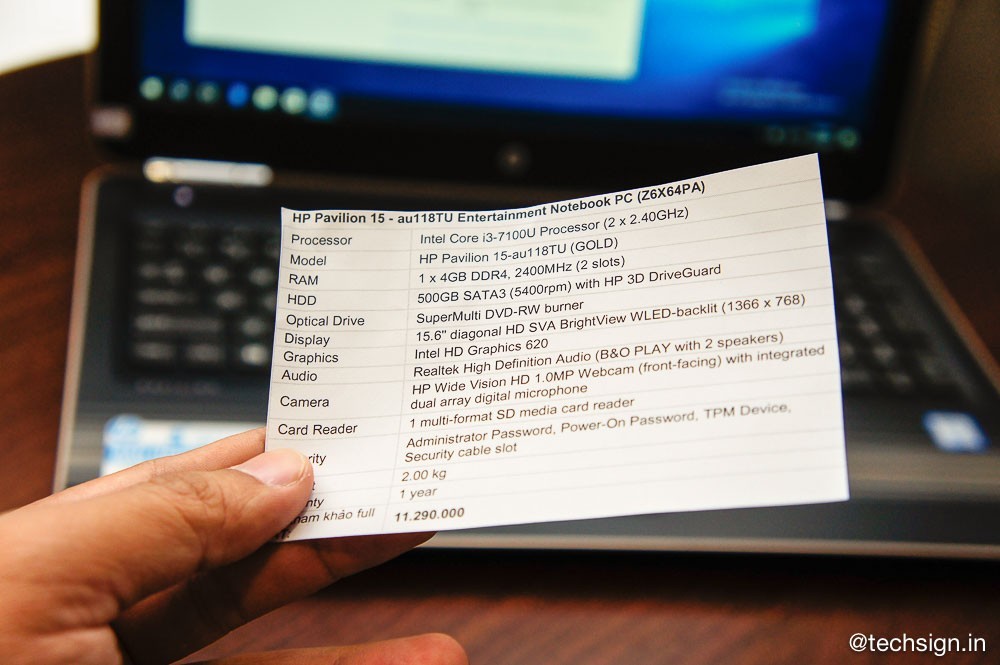 HP Pavilion 15 - au118TU Entertainment Notebook PC (Z6X64PA)
Processor Intel Core i3-7100U Processor (2 x 2.40GHz)
Model HP Pavilion 15-au118TU (GOLD)
RAM 1 x 4GB DDR4, 2400MHz (2 slots)
HDD 500GB SATA3 (5400rpm) with HP 3D DriveGuard
Optical Drive SuperMulti DVD-RW burner
Display 15.6" diagonal HD SVA BrightView WLED-backlit (1366 x 768)
Graphics Intel HD Graphics 620
Audio Realtek High Definition Audio (B&O PLAY with 2 speakers)
Camera HP Wide Vision HD 1.0MP Webcam (front-facing) with integrated
dual array digital microphone
Card Reader 1 multi-format SD media card reader
rity Administrator Password, Power-On Password, TPM Device,
Security cable slot
2.00 kg
nty 1 year
ham khảo full 11.290.000
@techsign.in